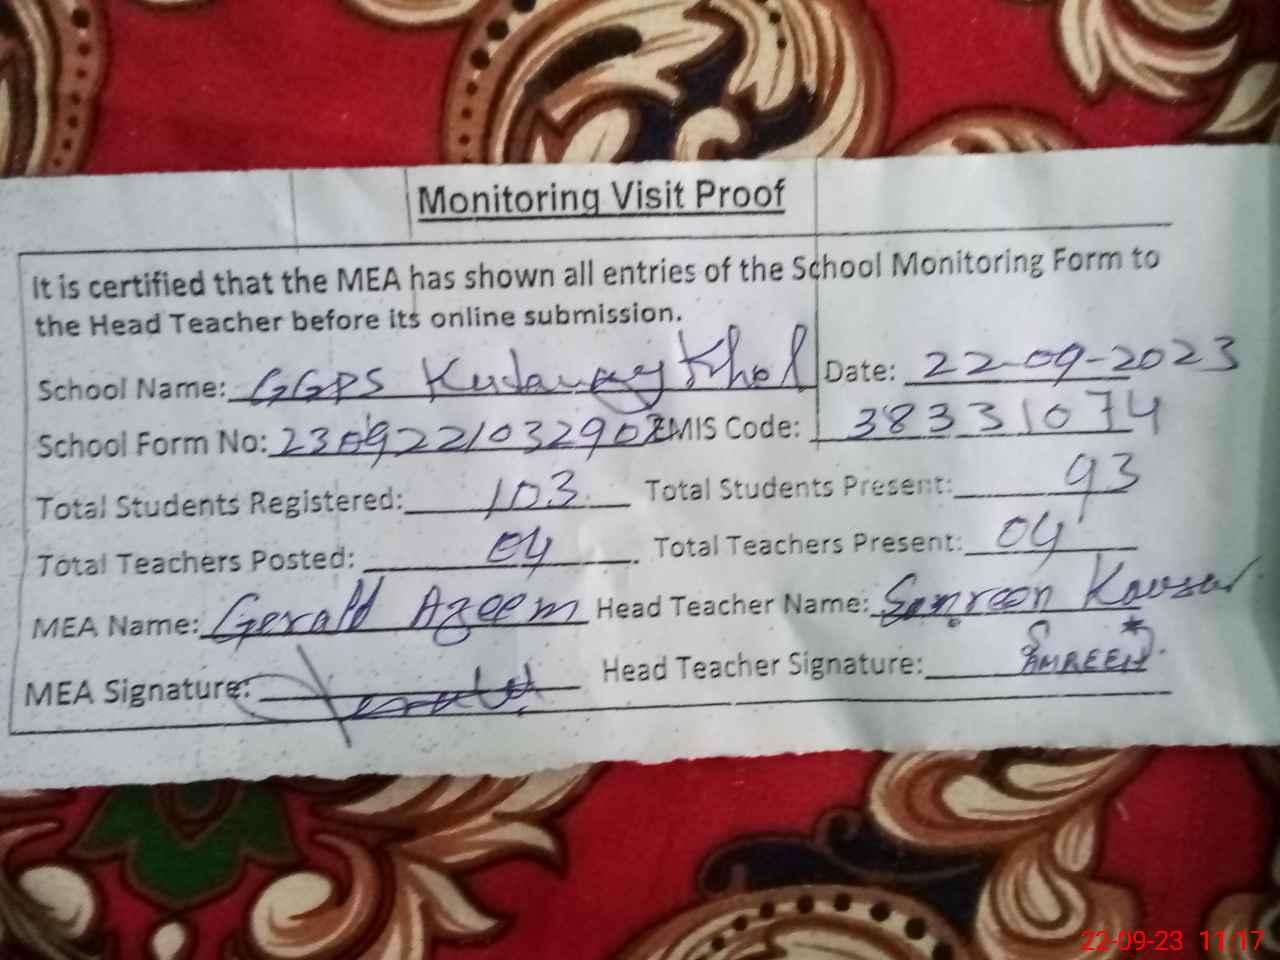 Monitoring Visit Proof
It is certified that the MEA has shown all entries of the School Monitoring Form to
the Head Teacher before its online submission.
School Name: GGPS Khol Date: 22-09-2023
School Form No: EMIS Code: 38331074
Total Students Registered: 103 Total Students Present: 93
Total Teachers Posted: 04 Total Teachers Present: 04
MEA Name: Gerald Azeem Head Teacher Name: Kausar
MEA Signature: Head Teacher Signature:
22-09-23 11:17